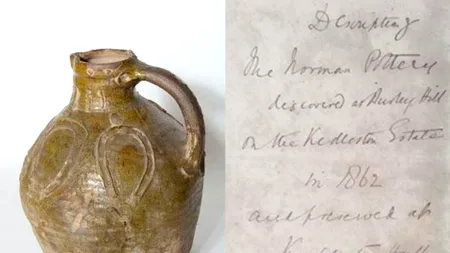 Descripting
The Norman Pottery
discovered at Burley Hill
on the Kedleston Estate
in 1862
and preserved at
Hall